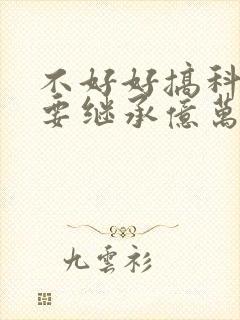 不好好搞科
要继承億萬
九雲衫